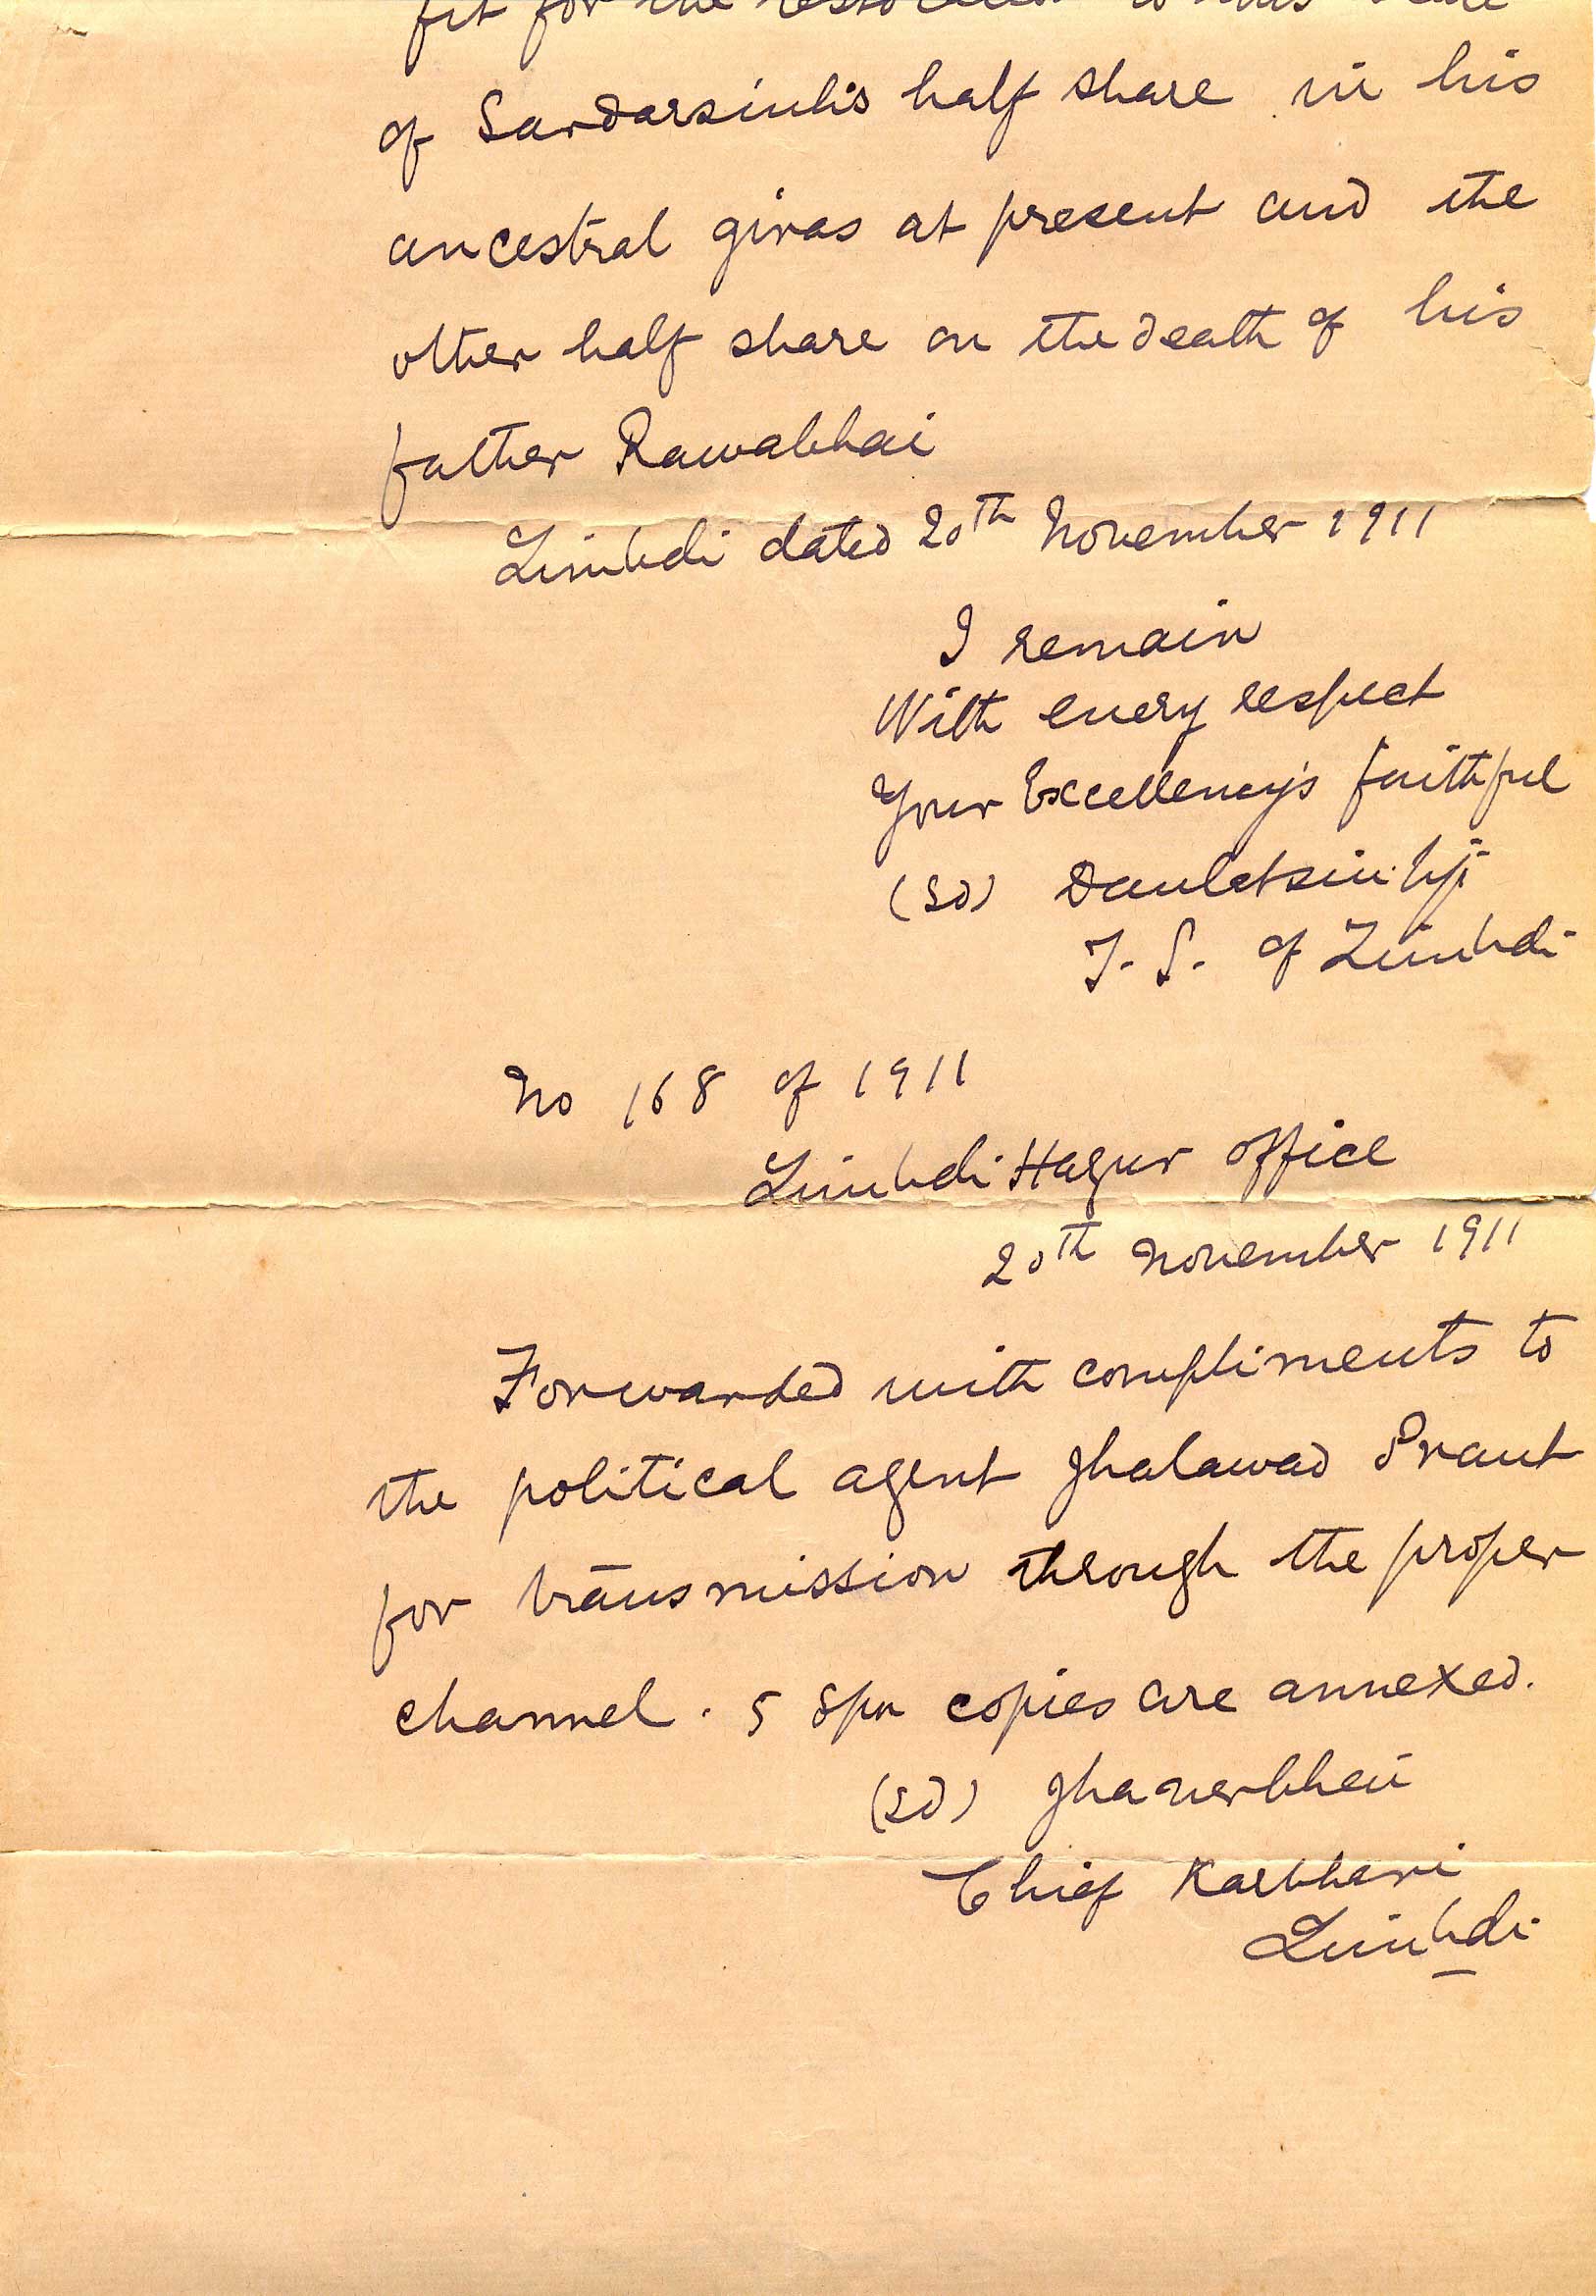 fit for the restoration to this State
of Sardarsinh's half share in his
ancestral giras at present and the
other half share on the death of his
father Rawabhai
Limbdi dated 20th November 1911
I remain
With every respect
Your Excellency's faithful
(Sd) Daulatsinhji
T. S. of Limbdi
No 168 of 1911
Limbdi Hazur office
20th November 1911
Forwarded with compliments to
the political agent Jhalawad Prant
for transmission through the proper
channel. 5 spr copies are annexed.
(Sd) Jhaverbhai
Chief Karbhari
Limbdi